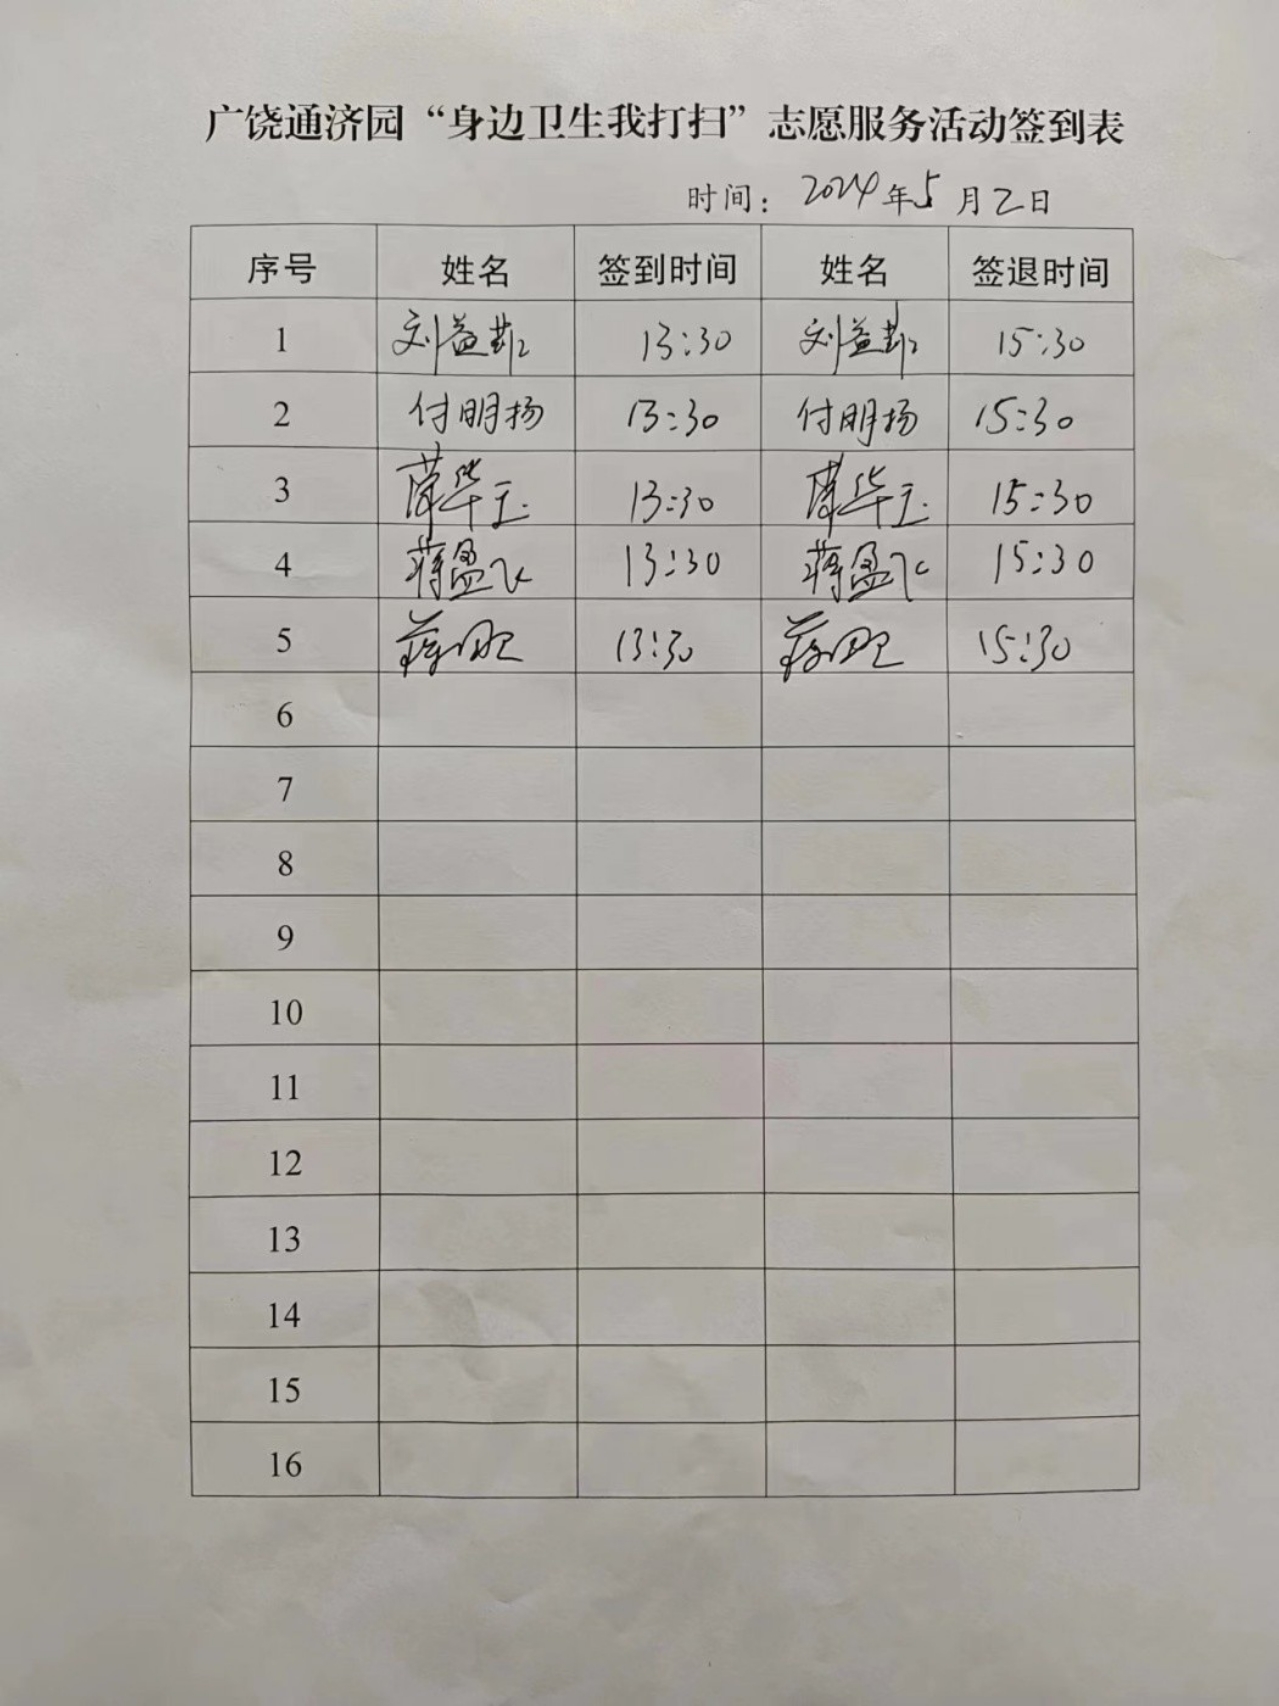 广饶通济园“身边卫生我打扫”志愿服务活动签到表
时间：2024年5月2日
序号 姓名 签到时间 姓名 签退时间
1 刘益 13:30 刘益 15:30
2 付明扬 13:30 付明扬 15:30
3 薛华玉 13:30 薛华玉 15:30
4 蒋盈飞 13:30 蒋盈飞 15:30
5 蒋 13:30 蒋 15:30
6
7
8
9
10
11
12
13
14
15
16